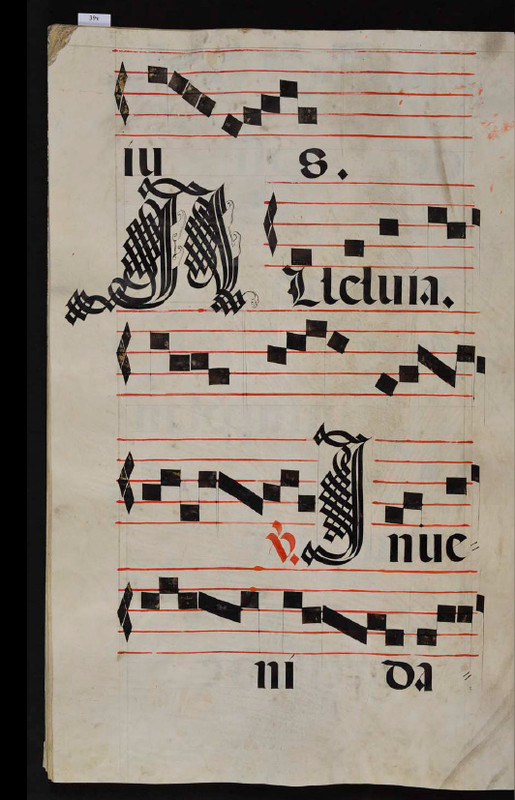 39v
iu s.
ALleluia.
℣. Jnue=
ni da=